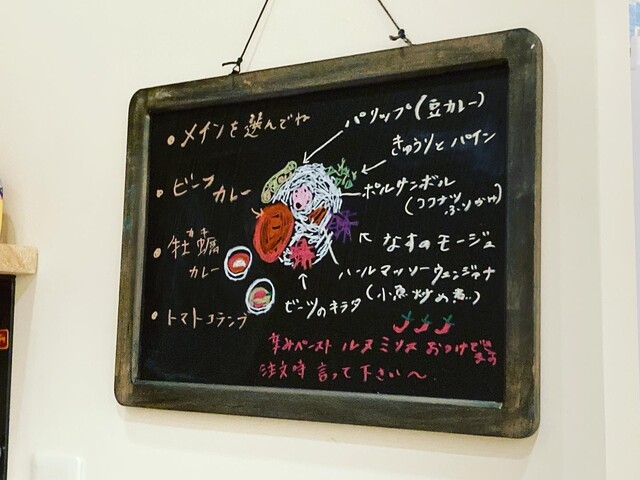 ・メインを選んでね
・ビーフ
カレー
・牡蠣
カキ
カレー
・トマトコランブ
パリップ(豆カレー)
きゅうりと パイン
ポルサンボル
(ココナツ
ふりかけ)
なすのモージュ
ハールマッソーウェンジャナ
(小魚炒め煮)
ビーツのキラタ
辛みペースト ルヌミリス おつけできます
注文時 言って下さい〜